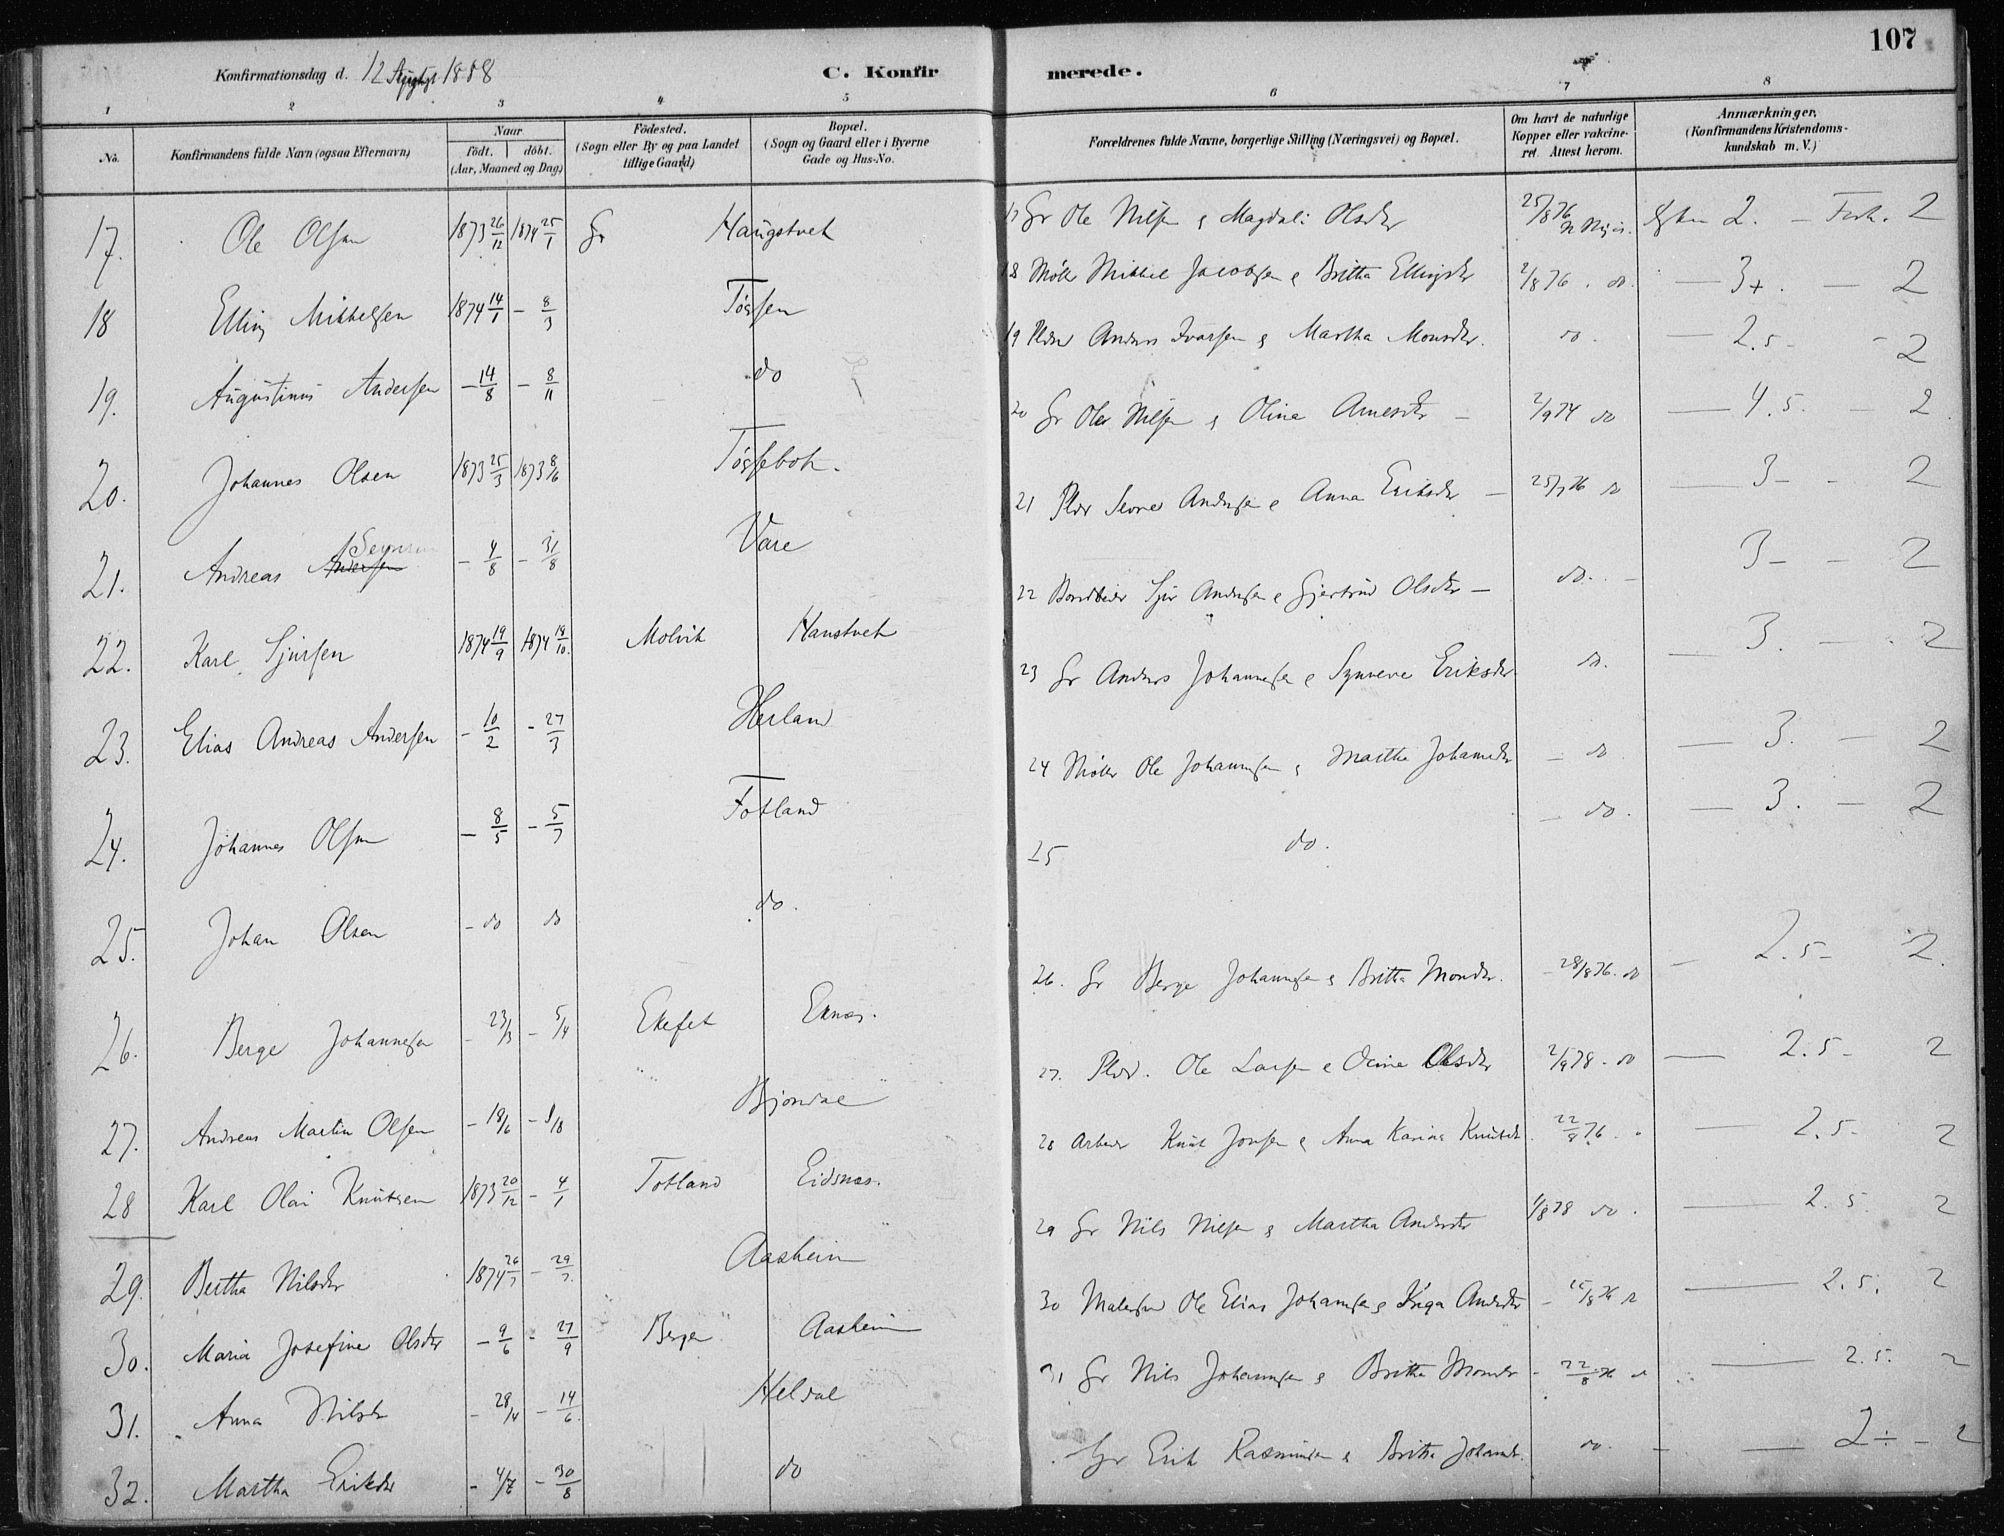 107
Konfirmationsdag d. 12 August 1888
C. Konfirmerede.
1 2 3 4 5 6 7 8
No.
Konfirmandens fulde Navn (ogsaa Efternavn)
Naar
födt. döbt.
(Aar, Maaned og Dag)
Födested.
(Sogn eller By og paa Landet
tillige Gaard)
Bopæl.
(Sogn og Gaard eller i Byerne
Gade og Hus-No.
Forældrenes fulde Navne, borgerlige Stilling (Næringsvei) og Bopæl.
Om havt de naturlige
Kopper eller vakcine-
ret. Attest herom.
Anmærkninger.
(Konfirmandens Kristendoms-
kundskab m. V.)
17. Ole Olsen 1873 26/12 1874 25/1 Gr Haugstvet 17 Gr Ole Nilsen & Magdali Olsdtr 25/8 76 2. - Forh. 2
18 Elling Mikkelsen 1874 14/1 - 8/3 Tössen 18 Mikkel Jacobsen & Britha Ellingsdtr 2/8 76 . do. - 3+. - 2
19. Augustinus Andersen - 14/8 - 8/11 do 19 Plds Anders Ivarsen & Martha Monsdtr. do. - 2.5 - 2
20. Johannes Olsen 1873 25/3 1873 8/6 Tössebotn. 20 Gr Ole Nilsen & Olina Arnesdtr - 2/9 74 do - 4.5. 2
21. Andreas Andersen Severinsen - 4/8 - 31/8 Vare 21 Plds Andersen & Anna Eriksdtr - 25/7 76 do - 3- - 2
22. Karl Sjursen 1874 19/9 1874 18/10. Molvik Haustvet 22 Sjur Andersen & Gjertrud Olsdtr - do. - 3- - 2
23. Elias Andreas Andersen - 10/2 - 27/3 Herland 23 Gr Anders Johannesen & Synneve Eriksdtr do. - 3. - 2
24. Johannes Olsen - 8/5 - 5/7 Totland 24 Ole Johannesen & Martha Johannesdtr - do - 3. - 2
25. Johan Olsen - do do do. 25 do. - do. - 3. - 2
26. Berge Johannesen - 23/3 - 5/4 Ekefet Eknes. 26. Gr Berge Johannesen & Britha Monsdtr. - 28/8 76. do - 2.5- 2.
27. Andreas Martin Olsen - 18/6 - 9/8 Bjordal 27. Plds. Ole Larsen & Olsdtr 2/9 78 - do - 2.5- 2
28 Karl Olai Knutsen 1873 20/12 - 4/1 Totland Eidsnes. 28 Arbeider Knut Jonsen & Anna Karina Knutsdtr 22/8 76. - 2.5- 2
29. Bertha Nilsdtr 1874 26/7 - 29/7. Aasheim 29 Gr Nils Nilsen & Martha Andersdtr 1/8 78 do. - 2.5. 2
30. Maria Josefine Olsdtr - 9/6 - 27/9 Bergen Aasheim 30 Ole Elias Johannesen & Inga Andersdtr - 15/8 76 do - 2.5. 2
31. Anna Nilsdtr - 28/4 - 14/6. Heldal 31 Gr Nils Johannesen & Britha Monsdtr - 22/8 76 do - 2.5. 2
32. Martha Eriksdtr - 4/7 - 30/8 do Gr Erik Rasmussen & Britha Johannesdtr. do. - 2÷ - 2